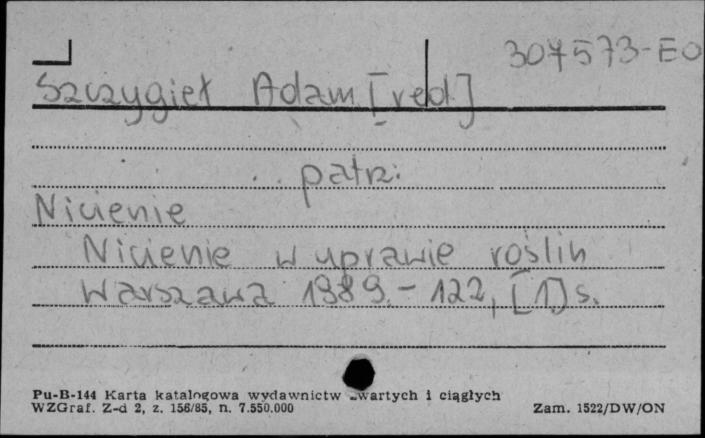 307573-EO
Szczygieł Adam [red]
patrz:
Nicienie
Nicienie w uprawie roślin
Warszawa 1989.- 122, [1] s.
Pu-B-144 Karta katalogowa wydawnictw zwartych i ciągłych
WZGraf. Z-d 2, z. 156/85, n. 7.550.000
Zam. 1522/DW/ON